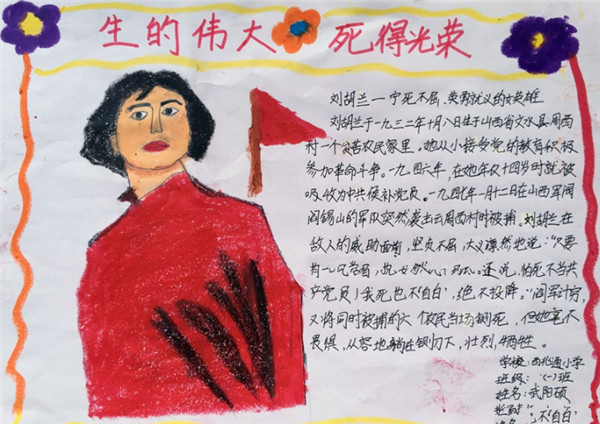 生的伟大 死得光荣
刘胡兰一宁死不屈、英勇就义的女英雄
刘胡兰于一九三二年十月八日生于山西省文水县云周西
村一个贫苦农民家里。她从小接受党的教育积极
参加革命斗争。一九四六年,在她年仅十四岁时就被
吸收为中共候补党员。一九四七年一月十二日在山西军阀
阎锡山的军队突然袭击云周西村时被捕。刘胡兰在
敌人的威胁面前,坚贞不屈,大义凛然地说:“只要
有一口气 还说,怕死不当共
产党员!我死也不‘自白’,绝不投降。”阎军计穷,
又将同时被捕的六 农民当场铡死,但她毫不
畏惧,从容地躺在铡刀下,壮烈牺牲。
学校: 小学
班级: (一)班
姓名:武阳硕
不‘自白’